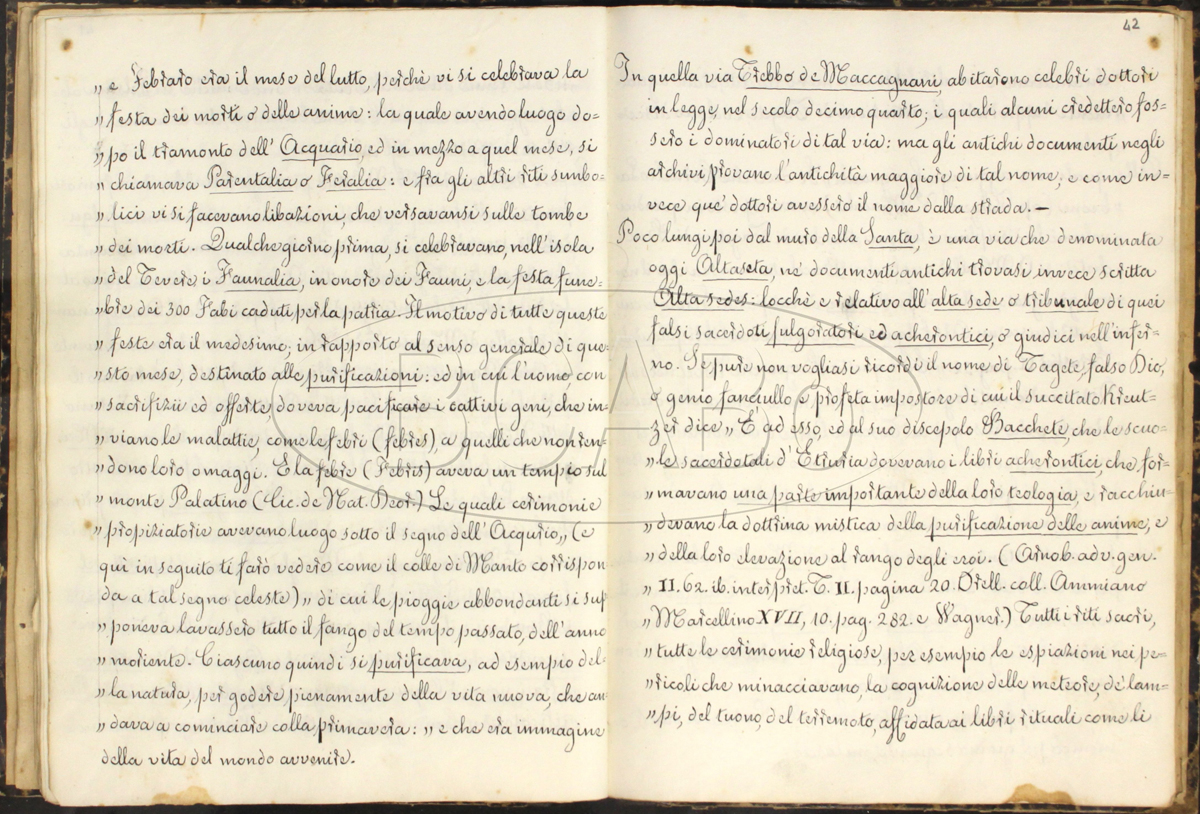 „ e Febraro era il mese del lutto, perchè vi si celebrava la
„ festa dei morti o delle anime: la quale avendo luogo do=
„ po il tramonto dell' Acquario, ed in mezzo a quel mese, si
„ chiamava Parentalia o Feralia: e fra gli altri riti simbo=
„ lici vi si facevano libazioni, che versavansi sulle tombe
„ dei morti. Qualche giorno prima, si celebravano, nell'isola
„ del Tevere i Faunalia, in onore dei Fauni, e la festa fune=
„ bre dei 300 Fabi caduti per la patria. Il motivo di tutte queste
„ feste era il medesimo; in rapporto al senso generale di que=
„ sto mese, destinato alle purificazioni: ed in cui l'uomo, con
„ sacrifizii ed offerte, doveva pacificare i cattivi geni, che in=
„ viano le malattie, come le febri (febres), a quelli che non ren=
„ dono loro omaggi. E la febre (Febris) aveva un tempio sul
„ monte Palatino (Cic. de Nat. Deor.) Le quali cerimonie
„ propiziatorie avevano luogo sotto il segno dell' Acqurio,, (e
qui in seguito ti farò vedere come il colle di Manto corrispon
da a tal segno celeste) „ di cui le pioggie abbondanti si sup
„ poneva lavassero tutto il fango del tempo passato, dell'anno
„ moriente. Ciascuno quindi si purificava, ad esempio del=
„ la natura, per godere pienamente della vita nuova, che an
„ dava a cominciare colla primavera: „ e che era immagine
della vita del mondo avvenire.
42
In quella via Trebbo de Maccagnani, abitarono celebri dottori
in legge, nel secolo decimo quarto; i quali alcuni credettero fos=
sero i dominatori di tal via: ma gli antichi documenti negli
archivi provano l'antichità maggiore di tal nome; e come in=
vece que' dottori avessero il nome dalla strada. —
Poco lungi poi dal muro della Santa, è una via che denominata
oggi Altaseta, ne' documenti antichi trovasi invece scritta
Alta sedes: locchè e relativo all'alta sede o tribunale di quei
falsi sacerdoti fulgoratori ed acherontici, o giudici nell'infer=
no. Se pure non vogliasi ricordi il nome di Tagete, falso Dio,
o genio fanciullo e profeta impostore di cui il succitato Kreut=
zer dice „ E' ad esso, ed al suo discepolo Bacchete, che le scuo=
„ le sacerdotali d' Etruria dovevano i libri acherontici, che for=
„ mavano una parte importante della loro teologia, e racchiu=
„ devano la dottrina mistica della purificazione delle anime, e
„ della loro elevazione al rango degli eroi. (Arnob. adv. gen.
„ II. 62. ib. interpret. T. II. pagina 20. Orell. coll. Ammiano
„ Marcellino XVII, 10. pag. 282. e Wagner.) Tutti i riti sacri,
„ tutte le cerimonie religiose, per esempio le espiazioni nei pe=
„ ricoli che minacciavano, la cognizione delle meteore, de' lam=
„ pi, del tuono, del terremoto, affidata ai libri rituali come li